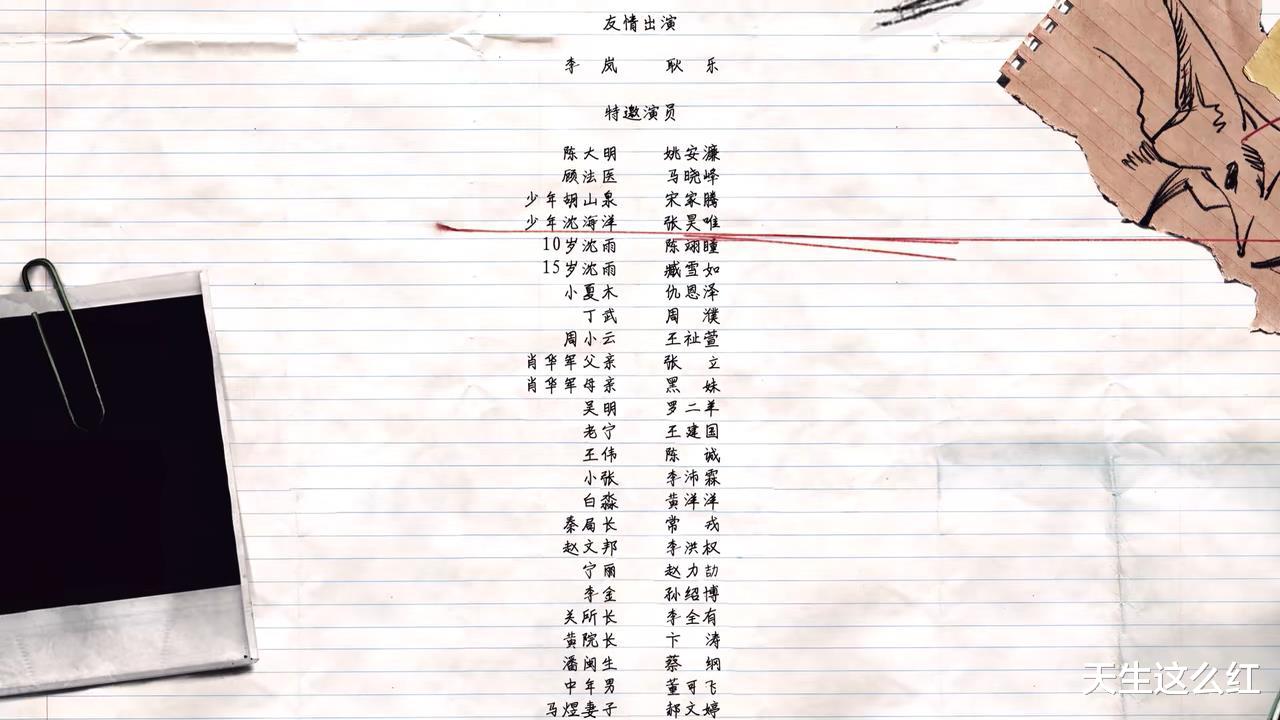 友情出演
李岚 耿乐
特邀演员
陈大明 姚安濂
顾法医 马晓峰
少年胡山泉 宋家腾
少年沈海洋 张昊唯
10岁沈雨 陈翊曈
15岁沈雨 臧雪如
小夏木 仇恩泽
丁武 周濮
周小云 王祉萱
肖华军父亲 张立
肖华军母亲 黑妹
吴明 罗二羊
老宁 王建国
王伟 陈诚
小张 李沛霖
白淼 黄洋洋
秦局长 常戎
赵文邦 李洪权
宁丽 赵力劼
李金 孙绍博
关所长 李全有
黄院长 卞涛
潘闽生 蔡纲
中年男 董可飞
马煜妻子 郝文婷
天生这么红